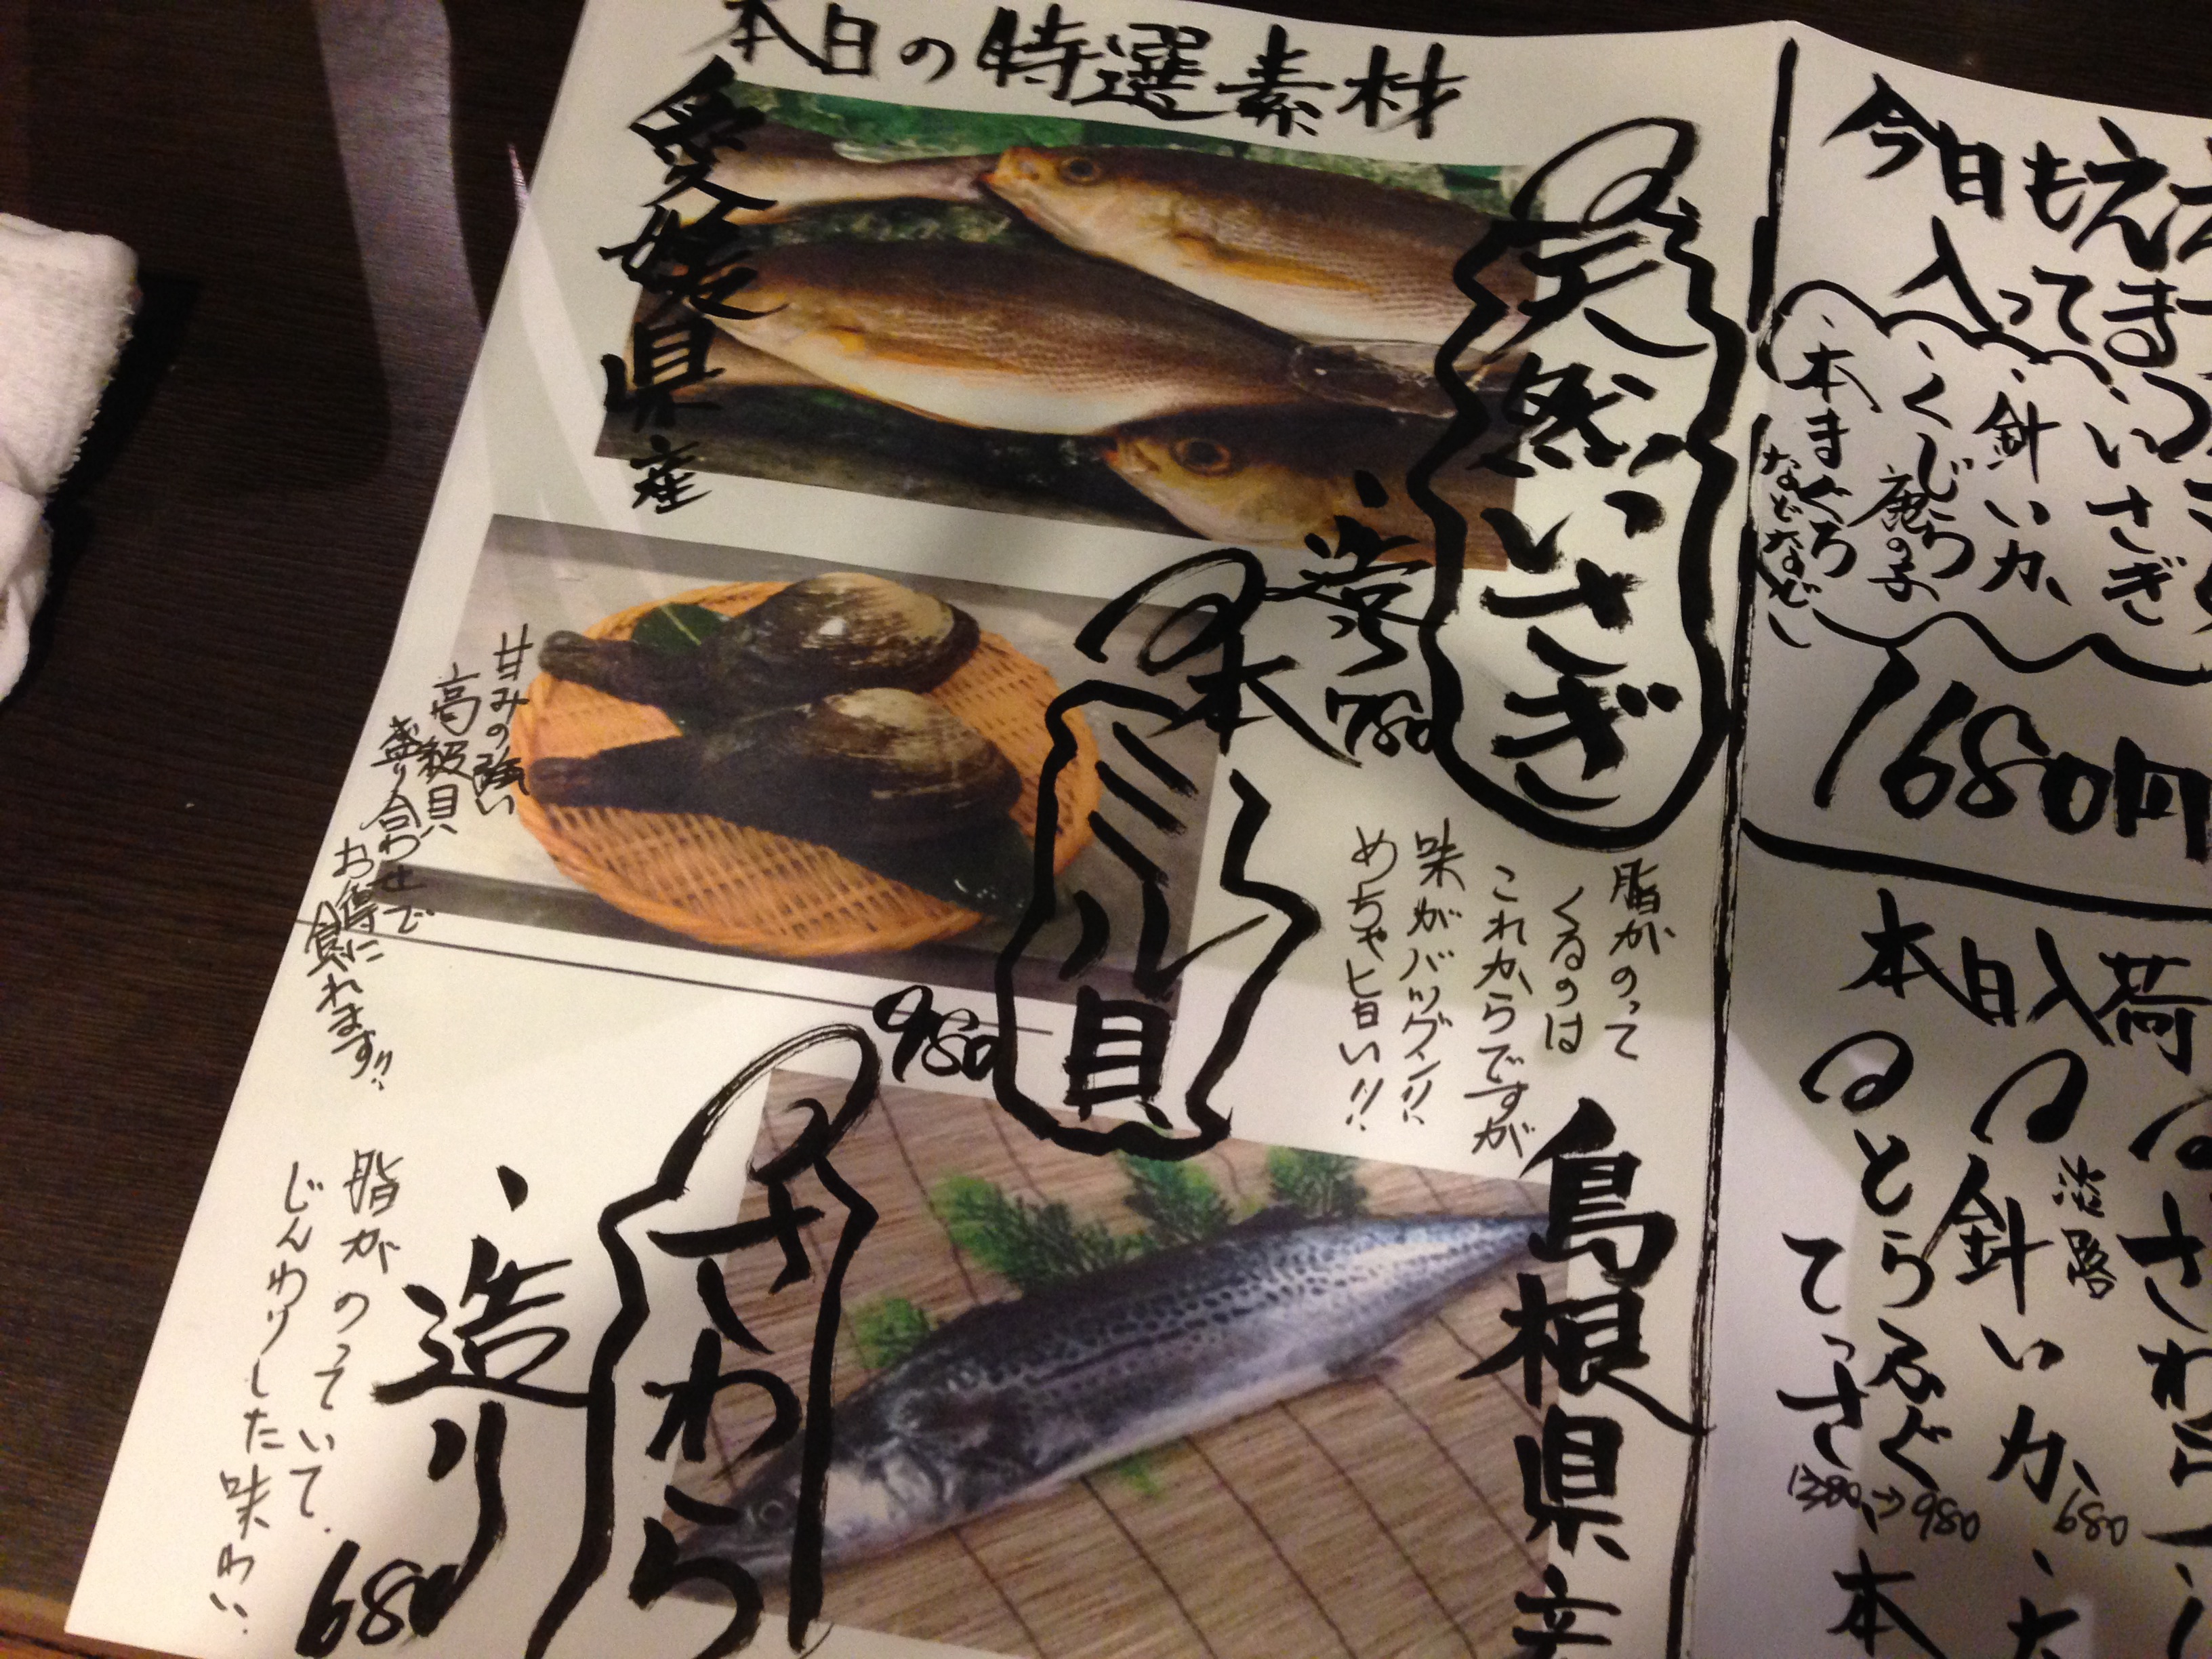 本日の特選素材
愛媛県産
天然いさぎ
・造り 780
脂がのって
くるのは
これからですが
味がバツグン!!
めちゃ旨い!!
本ミル貝
980
甘みの強い
高級貝、
盛り合わせで
お得に
食れます!!
島根県産
さわら
・造り
680
脂がのっていて、
じんわりした味わい。
今日もええ
入ってます
・いさぎ
・針いか、
・くじら 鹿の子、
・本まぐろ
などなど
1680円
本日入荷
さわら
淡路
針いか、
680
とらふぐ
てっさ
1380→980